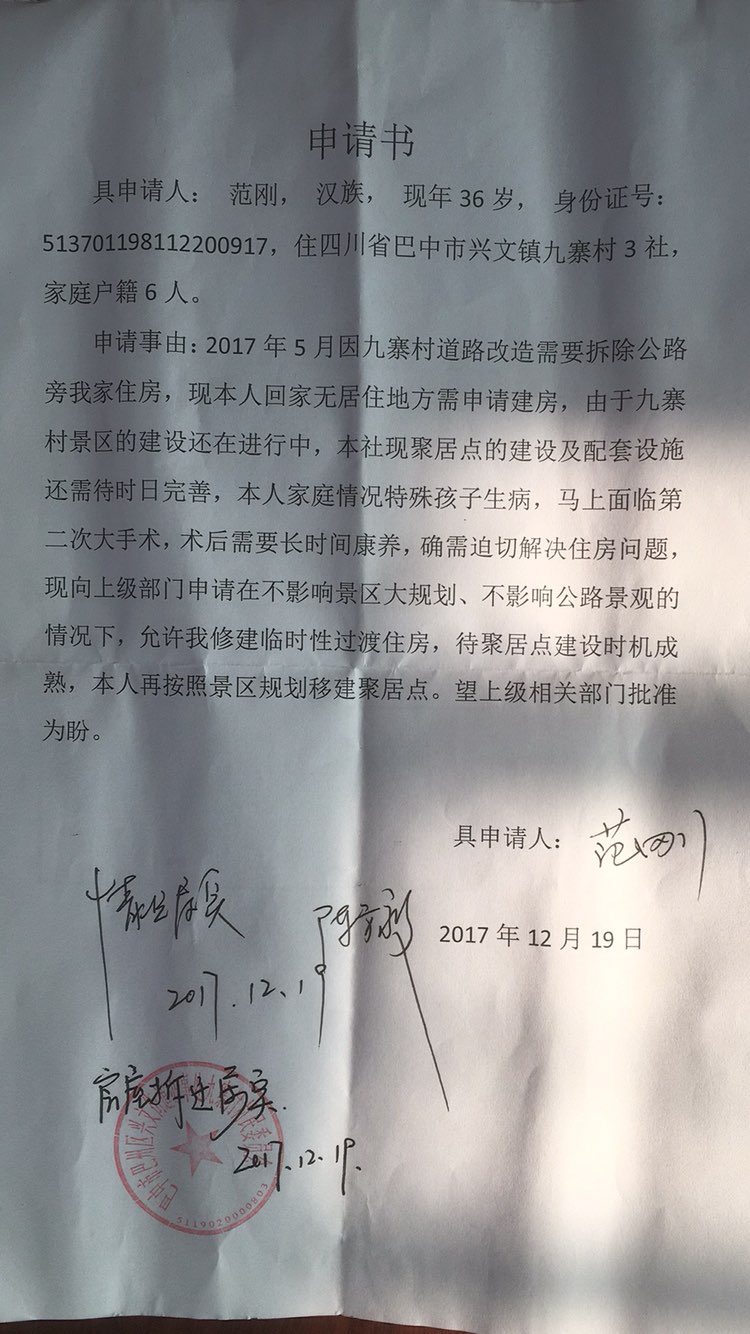 申请书
具申请人： 范刚， 汉族， 现年 36 岁， 身份证号：
513701198112200917，住四川省巴中市兴文镇九寨村 3 社，
家庭户籍 6 人。
申请事由：2017 年 5 月因九寨村道路改造需要拆除公路
旁我家住房，现本人回家无居住地方需申请建房，由于九寨
村景区的建设还在进行中，本社现聚居点的建设及配套设施
还需待时日完善，本人家庭情况特殊孩子生病，马上面临第
二次大手术，术后需要长时间康养，确需迫切解决住房问题，
现向上级部门申请在不影响景区大规划、不影响公路景观的
情况下，允许我修建临时性过渡住房，待聚居点建设时机成
熟，本人再按照景区规划移建聚居点。望上级相关部门批准
为盼。
具申请人： 范刚
情况属实
2017 年 12 月 19 日
2017.12.19
房屋拆迁属实.
2017.12.19.
5119020000803